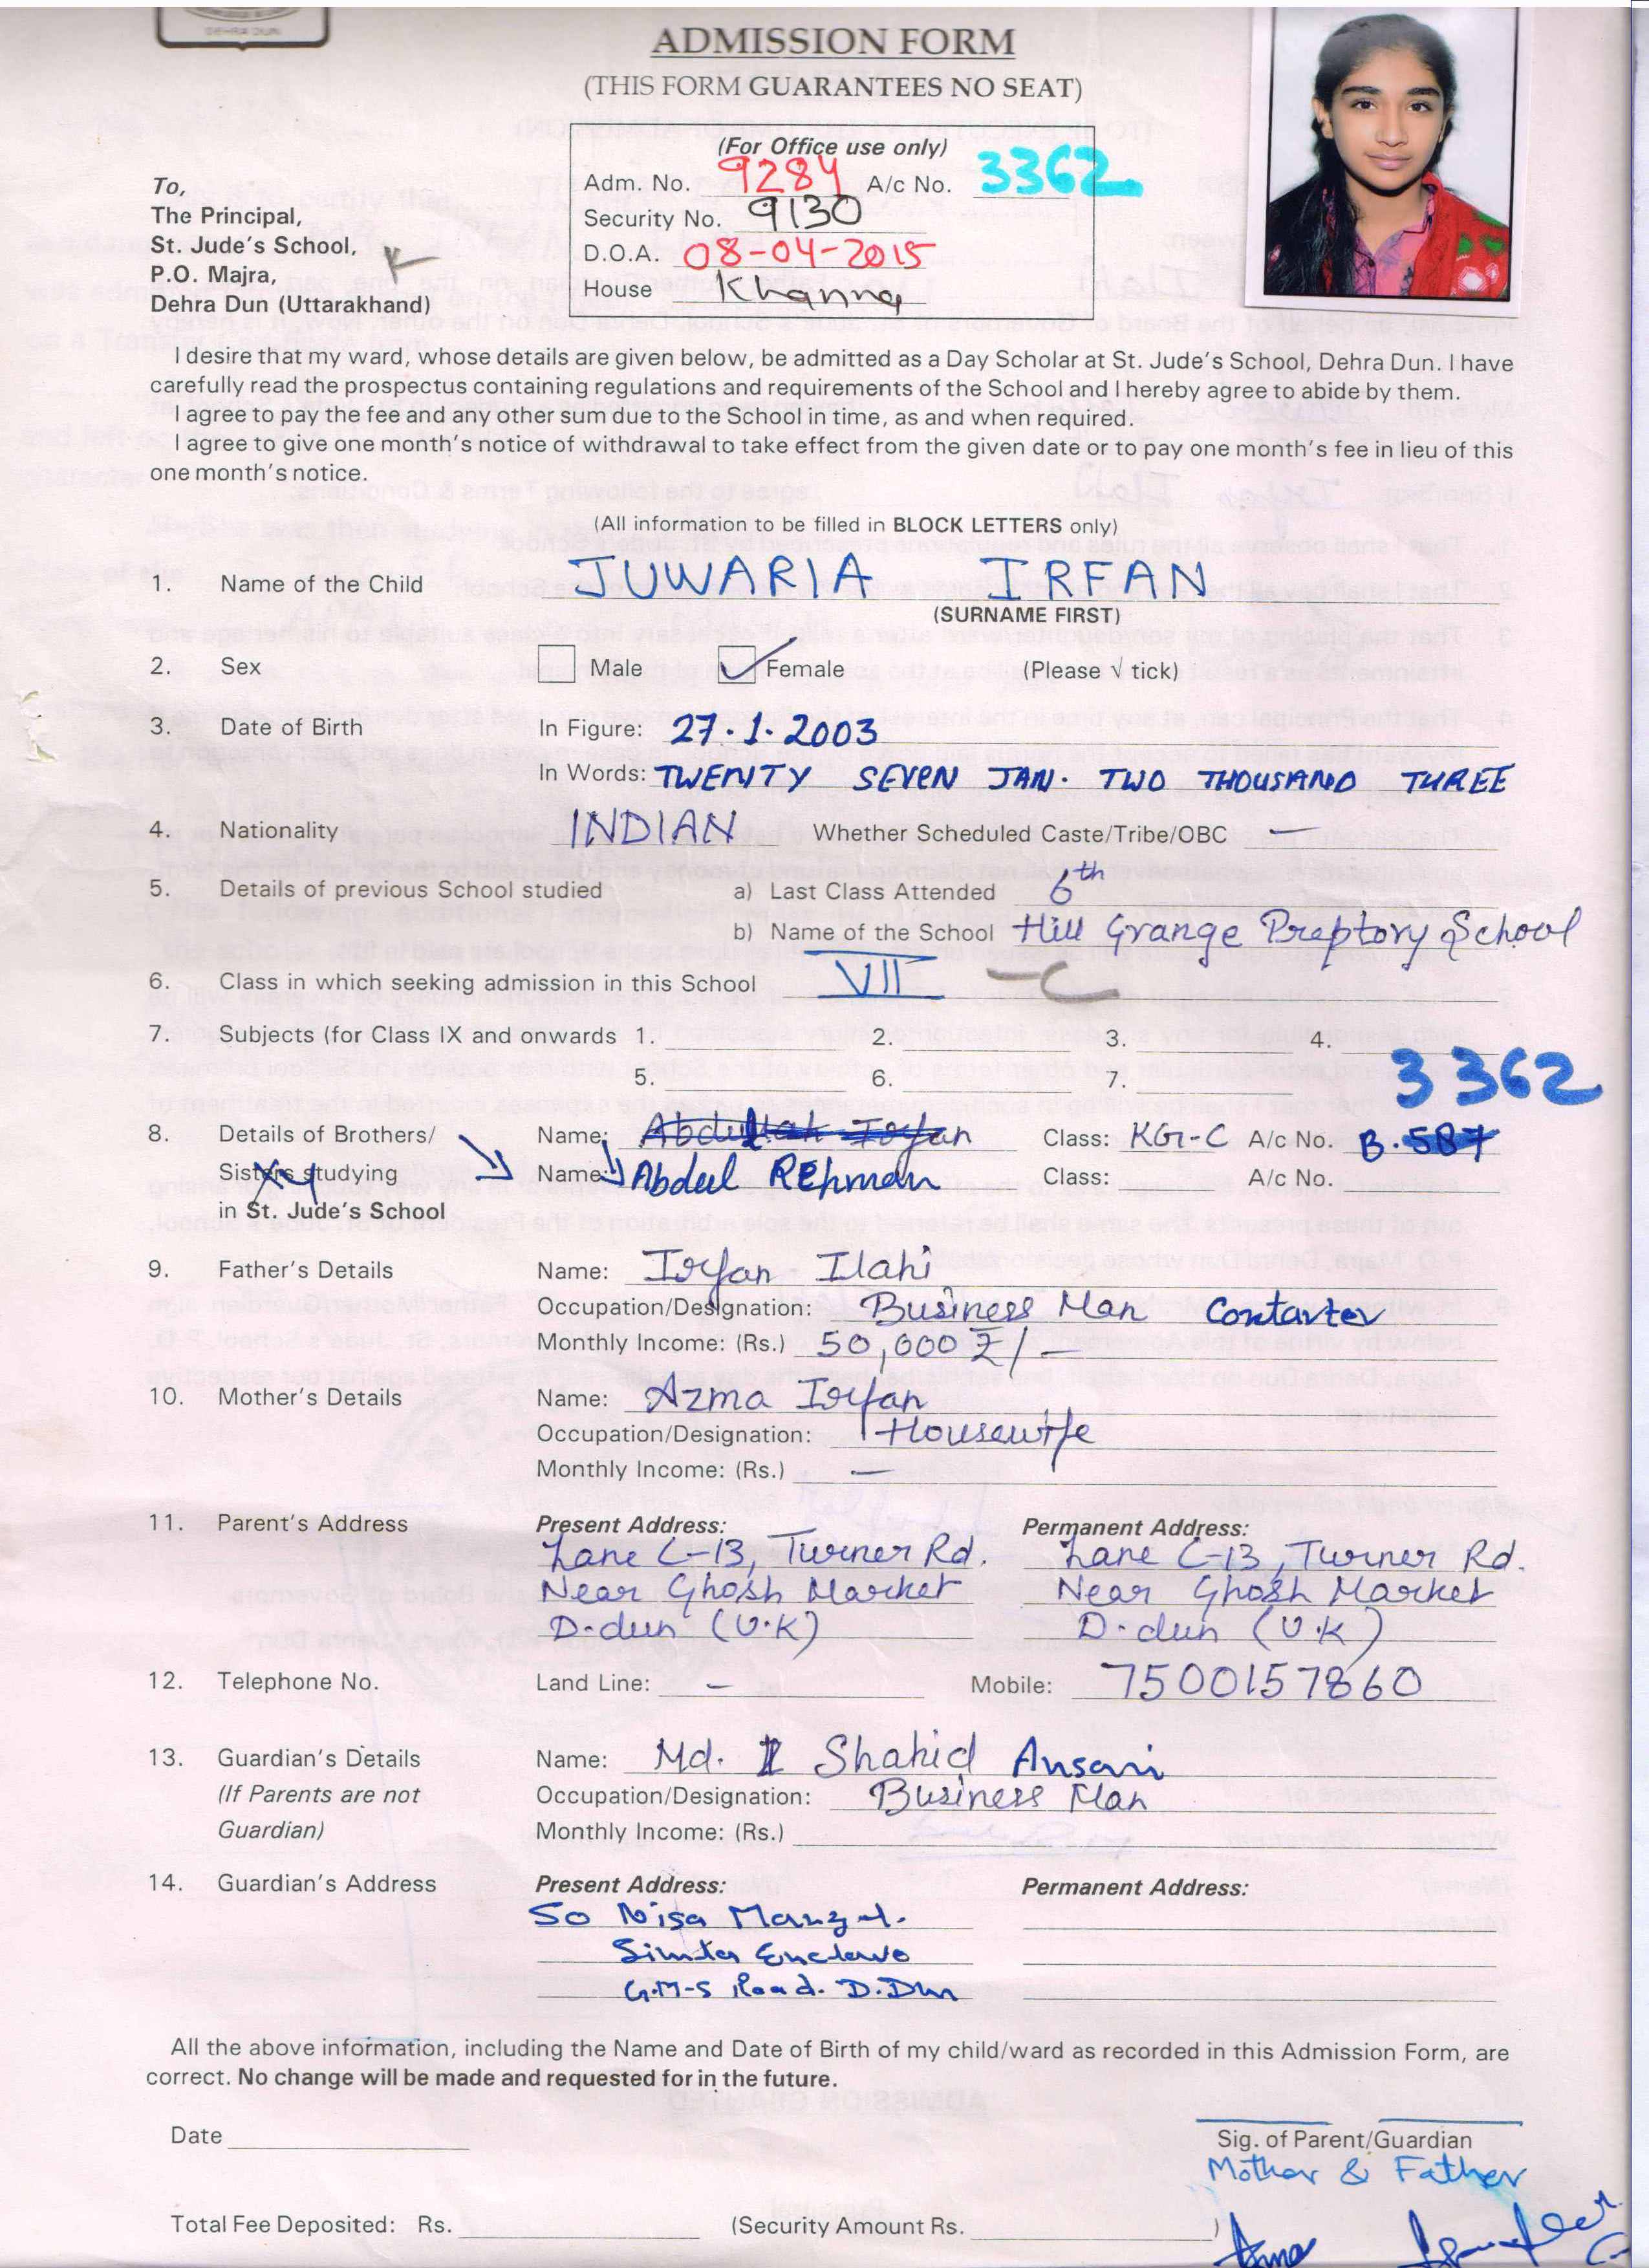 DEHRA DUN
ADMISSION FORM
(THIS FORM GUARANTEES NO SEAT)
(For Office use only)
Adm. No. 9284 A/c No. 3362
Security No. 9130
D.O.A. 08-04-2015
House Khanna
To,
The Principal,
St. Jude's School,
P.O. Majra,
Dehra Dun (Uttarakhand)
I desire that my ward, whose details are given below, be admitted as a Day Scholar at St. Jude's School, Dehra Dun. I have
carefully read the prospectus containing regulations and requirements of the School and I hereby agree to abide by them.
I agree to pay the fee and any other sum due to the School in time, as and when required.
I agree to give one month's notice of withdrawal to take effect from the given date or to pay one month's fee in lieu of this
one month's notice.
(All information to be filled in BLOCK LETTERS only)
1. Name of the Child JUWARIA IRFAN
(SURNAME FIRST)
2. Sex Male Female (Please √ tick)
3. Date of Birth In Figure: 27.1.2003
In Words: TWENTY SEVEN JAN. TWO THOUSAND THREE
4. Nationality INDIAN Whether Scheduled Caste/Tribe/OBC —
5. Details of previous School studied a) Last Class Attended 6th
b) Name of the School Hill Grange Preptory School
6. Class in which seeking admission in this School VII -C
7. Subjects (for Class IX and onwards 1. 2. 3. 4.
5. 6. 7. 3362
8. Details of Brothers/ Name: Abdullah Irfan Class: KG-C A/c No. B.587
Sisters studying Name: Abdul REhman Class: A/c No.
in St. Jude's School
9. Father's Details Name: Irfan Ilahi
Occupation/Designation: Business Man Contarter
Monthly Income: (Rs.) 50,000 ₹/—
10. Mother's Details Name: Azma Irfan
Occupation/Designation: Housewife
Monthly Income: (Rs.) —
11. Parent's Address Present Address: Permanent Address:
Lane C-13, Turner Rd. Lane C-13, Turner Rd.
Near Ghosh Market Near Ghosh Market
D.dun (U.K) D.dun (U.K)
12. Telephone No. Land Line: — Mobile: 7500157860
13. Guardian's Details Name: Md. Shahid Ansari
(If Parents are not Occupation/Designation: Business Man
Guardian) Monthly Income: (Rs.)
14. Guardian's Address Present Address: Permanent Address:
50 Nisa Manzal.
Enclave
G.M-S Road. D.Dun
All the above information, including the Name and Date of Birth of my child/ward as recorded in this Admission Form, are
correct. No change will be made and requested for in the future.
Date
Sig. of Parent/Guardian
Mother & Father
Total Fee Deposited: Rs. (Security Amount Rs. )